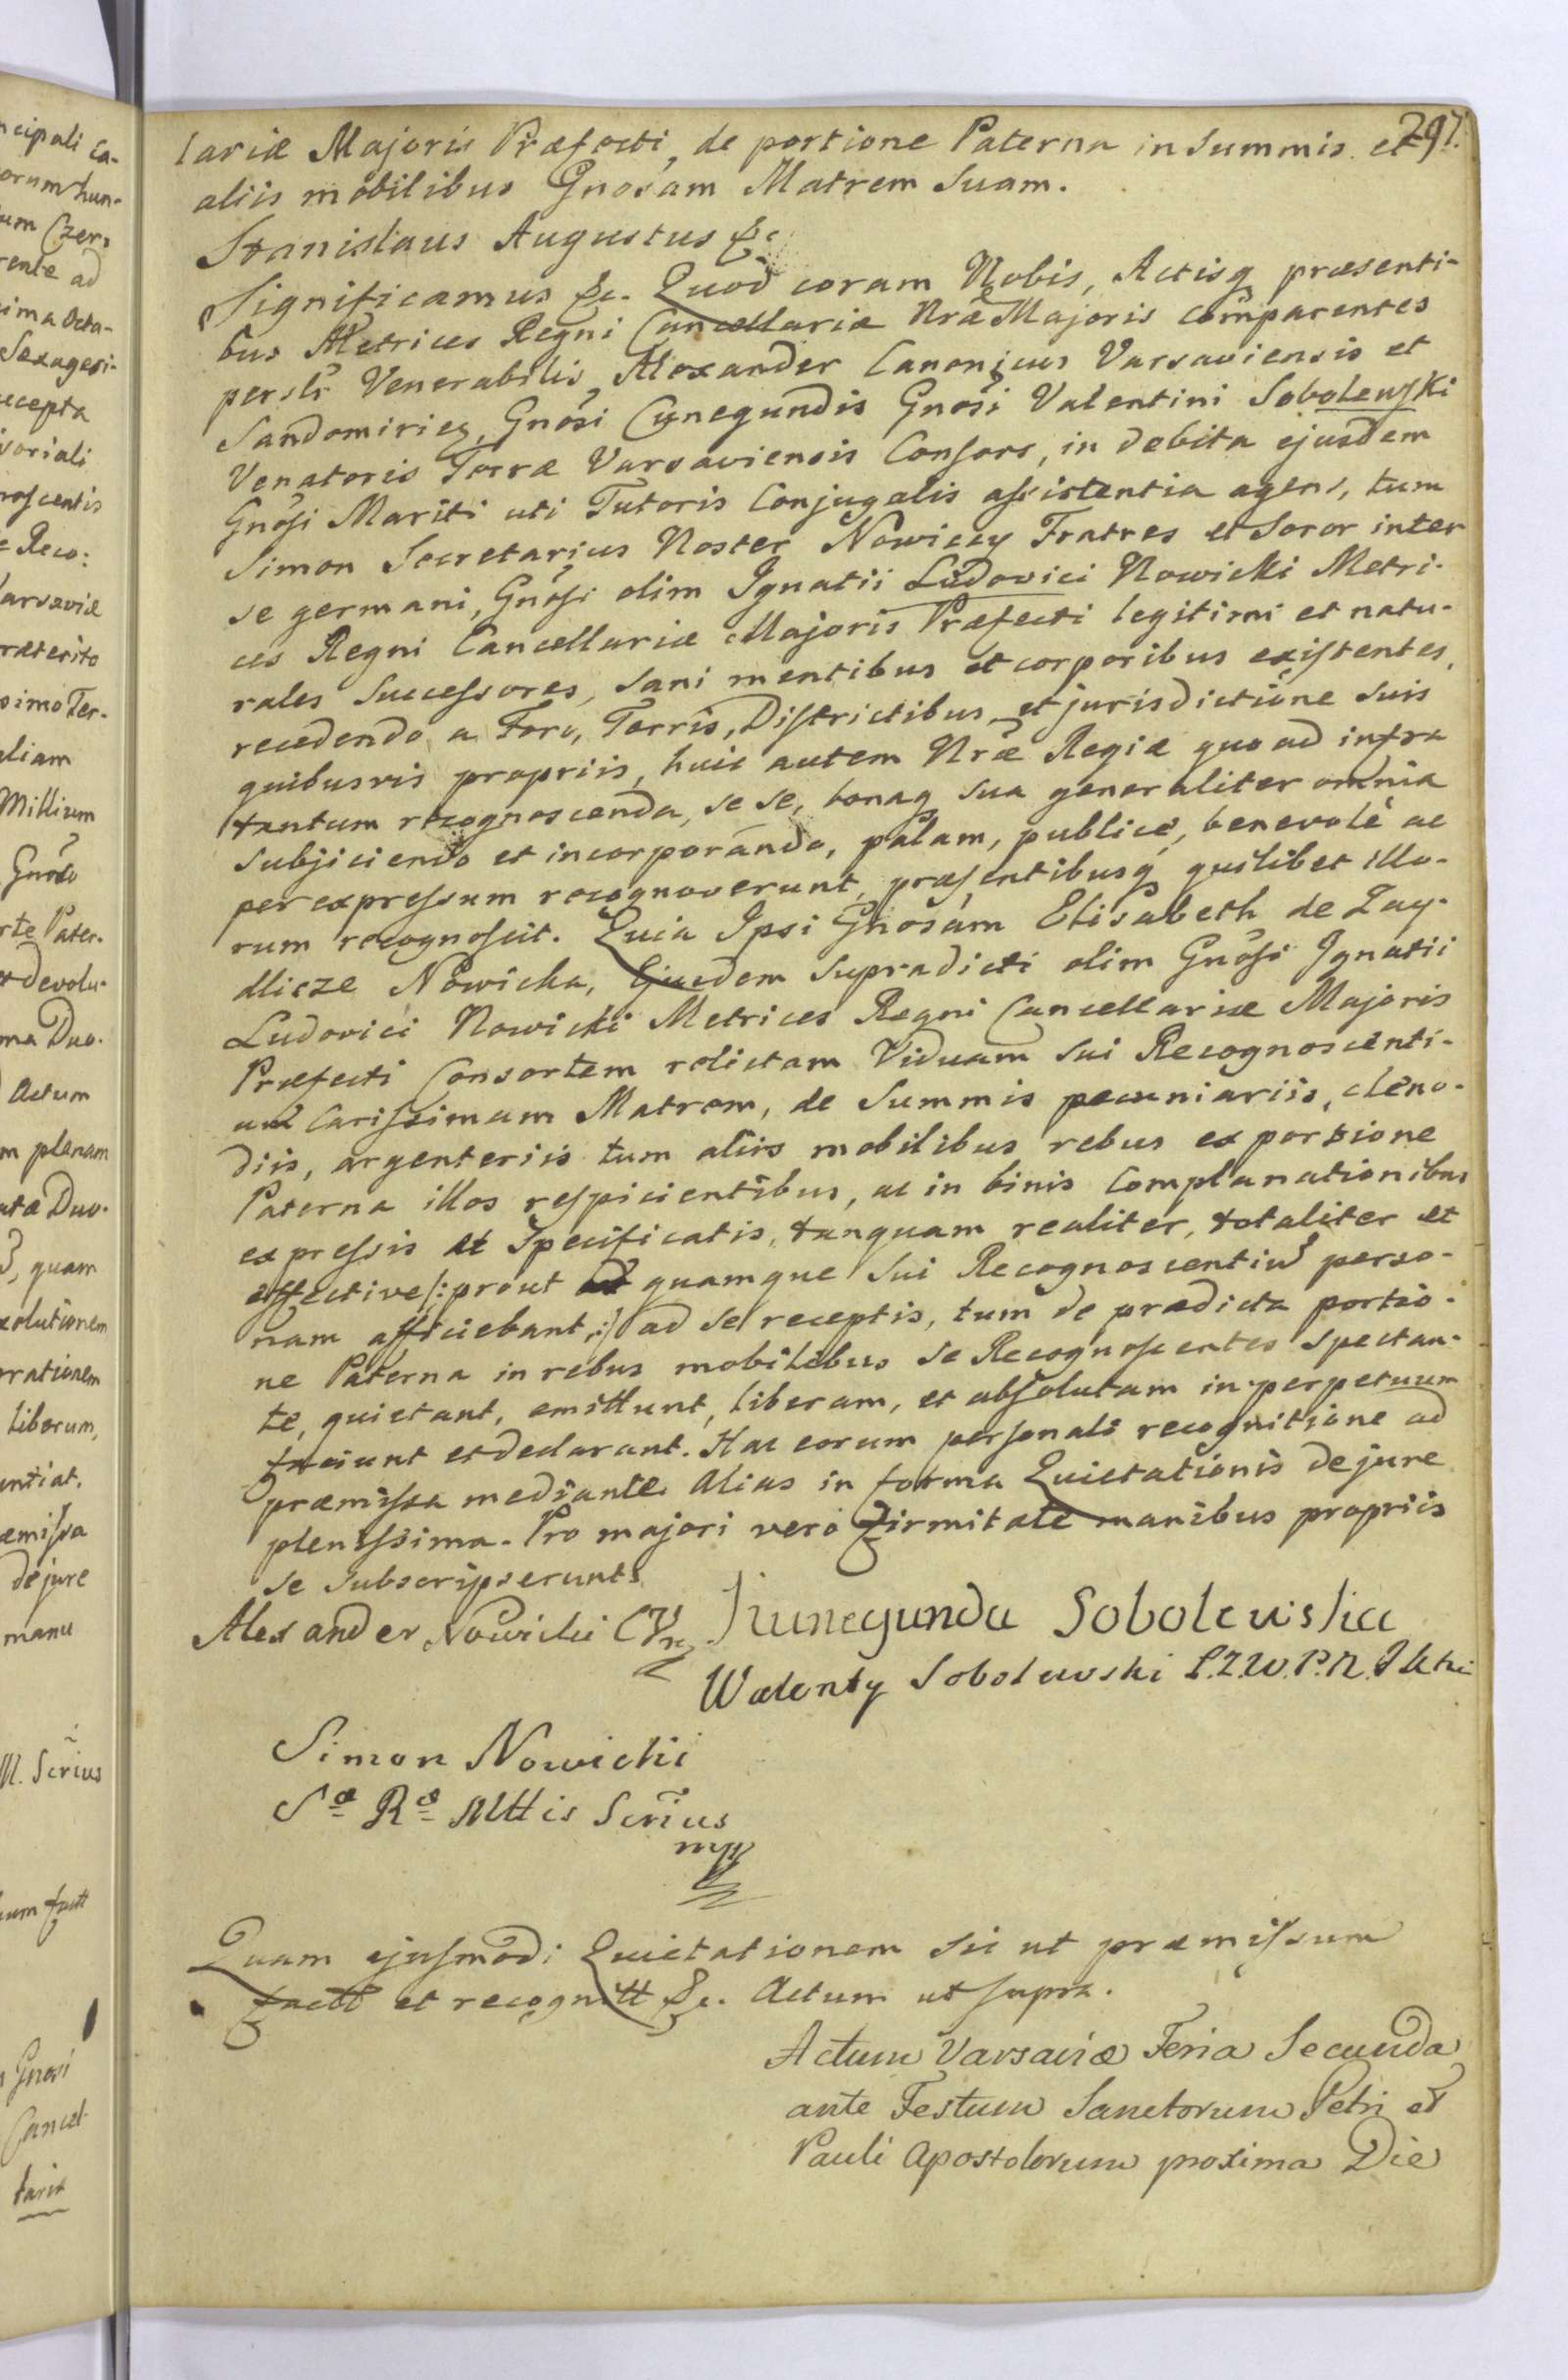 297.
lariæ Majoris Præfecti, de portione Paterna in Summis et
aliis mobilibus Gnosam Matrem Suam.
Stanislaus Augustus &c
Significamus &c. Quod coram Nobis, Actisq præsenti-
bus Metrices Regni Cancellariæ Nrae Majoris comparentes
persolr Venerabilis Alexander Canonicus Varsaviensis et
Sandomiries, Gnosi Cunegundis Gnosi Valentini Sobolewski
Venatoris Terræ Varsaviensis Consors, in debita ejusdem
Gnosi Mariti uti Tutoris Conjugalis assistentia agens, tum
Simon Secretarius Noster Nowiccy Fratres et Soror inter
se germani, Gnosi olim Ignatii Ludovici Nowicki Metri-
ces Regni Cancellariæ Majoris Præfecti legitimi et natu-
rales Successores, Sani mentibus et corporibus existentes,
recedendo a Foro, Terris, Districtibus et jurisdictione Suis
quibusvis propriis, huic autem Nræ Regiæ quo ad infra
tantum recognoscenda, se se, bonaq sua generaliter omnia
subjiciendo et incorporando, palam, publice, benevole ac
per expressum recognoverunt, præsentibusq quilibet illo-
rum recognoscit. Quia Ipsi Gnosam Elisabeth de Zay-
dlicze Nowicka, Ejusdem Supradicti olim Gnosi Ignatii
Ludovici Nowicki Metrices Regni Cancellariæ Majoris
Præfecti Consortem relictam Viduam Sui Recognoscenti-
um Carissimam Matrem, de Summis pecuniariis, cleno-
diis, argenteriis tum aliis mobilibus rebus ex portione
Paterna illos respicientibus, ac in binis Complanationibus
expressis et Specificatis, tanquam realiter, totaliter et
effective /: prout quamque Sui Recognoscentiu perso-
nam afficiebant, :/ ad se receptis, tum de prædicta portio-
ne Paterna in rebus mobilibus se Recognoscentes Spectan-
te, quietant, emittunt, liberam, et absolutam in perpetuum
faciunt et declarant. Hac eorum personali recognitione ad
præmissa mediante. Alias in forma Quietationis de jure
plenissima. Pro majori vero firmitate manibus propriis
se subscripserunt.
Alexander Nowicki Kunegunda Sobolewska
Walenty Sobolewski Ł.Z.W.P.N.
Simon Nowicki
Sæ Ræ Mttis Scrius
mpp
Quam ejusmodi Quietationem sic ut præmissum
factt et recognitt &c. Actum ut supra.
Actum Varsaviæ Feria Secunda
ante Festum Sanctorum Petri et
Pauli Apostolorum proxima Die